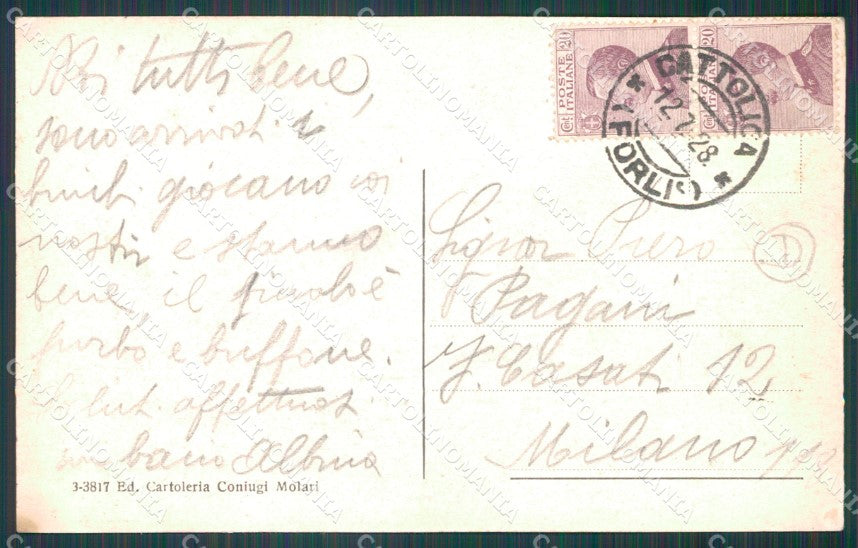 Noi tutti bene,
sono arrivati i
bimbi giocano coi
nostri e stanno
bene, il piccolo è
furbo e buffone.
Saluti affettuosi
un bacio Albina
3-3817 Ed. Cartoleria Coniugi Molari
POSTE ITALIANE
Ct. 20
20
CATTOLICA
12.7.28.
(FORLI)
Signor Piero
Pagani
V. Casati 12
Milano
CARTOLINOMANIA